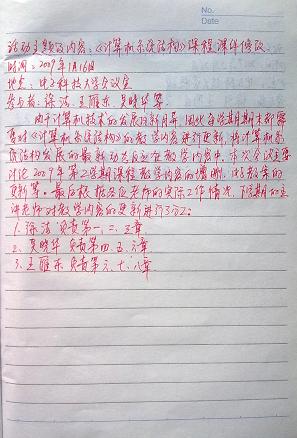 No.
Date
活动主题及内容:《计算机系统结构》课程课件修改
时间:2009年1月16日
地点:电子科技大学会议室
参与者:徐洁、王雁东、吴晓华等
由于计算机技术的发展日新月异,因此每学期期末都需
要对《计算机系统结构》的教学内容进行更新,将计算机系
统结构发展的最新动态反应在教学内容中。本次会议主要
讨论2009年第二学期课程教学内容的增删,以及教案的
更新等。最后根据各位老师的实际工作情况,下学期的主
讲老师对教学内容的更新进行了分工:
1. 徐洁 负责第一、二、三章
2. 吴晓华 负责第四、五、六章
3. 王雁东 负责第六、七、八章